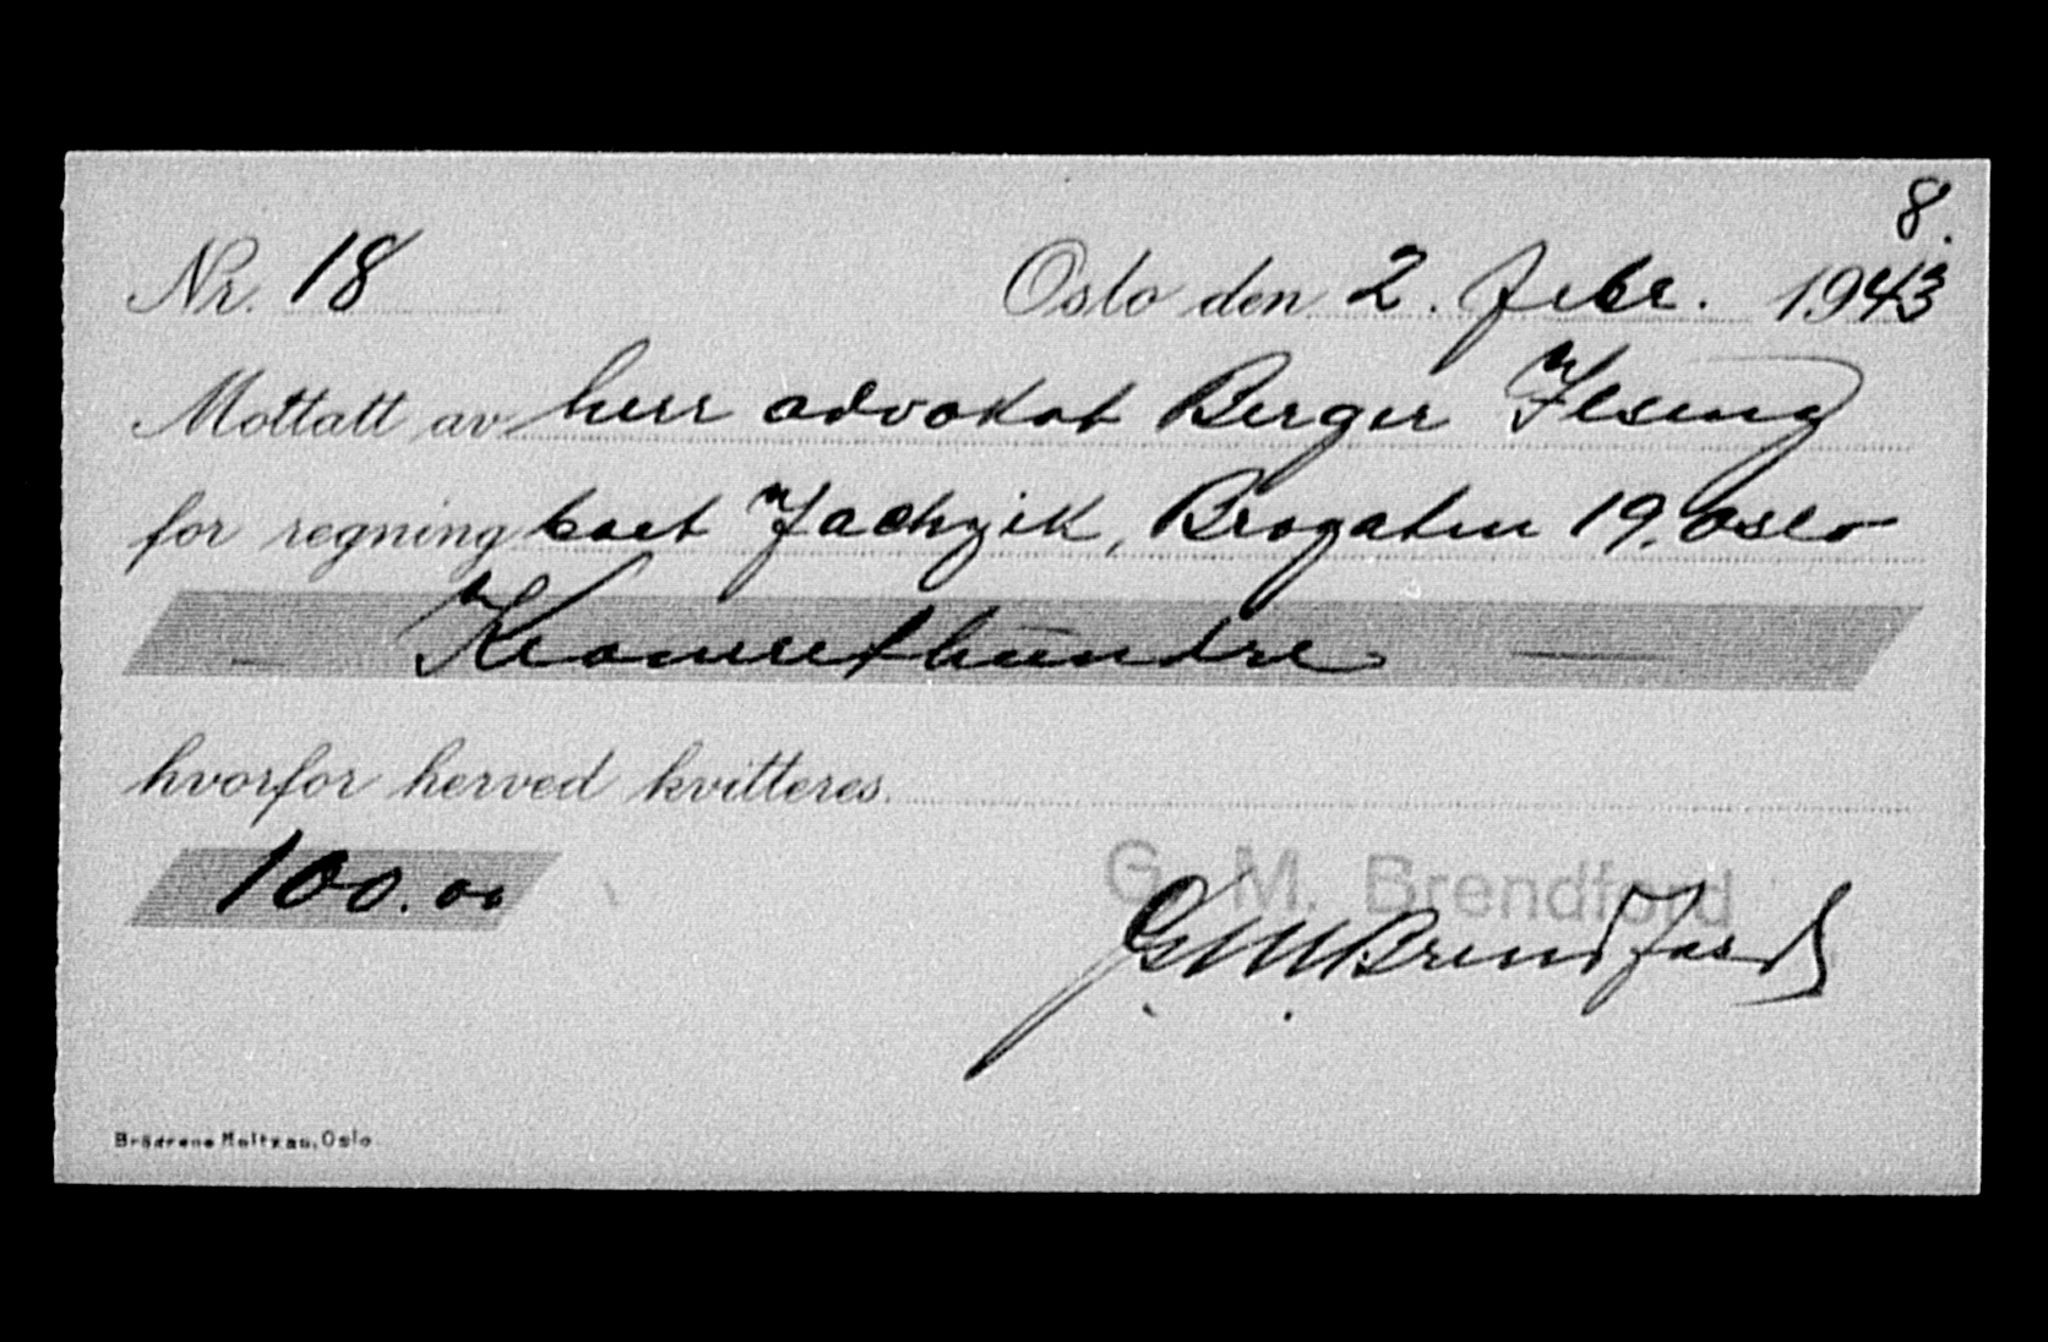 8.
Nr. 18 Oslo den 2. febr. 1943
Mottatt av herr advokat Berger Ilseng
for regning boet Jachzik, Brogaten 19. Oslo
Kronerethundre
hvorfor herved kvitteres
100.00
G. M. Brendford
G M Brendford
Brödrene Moltzau, Oslo